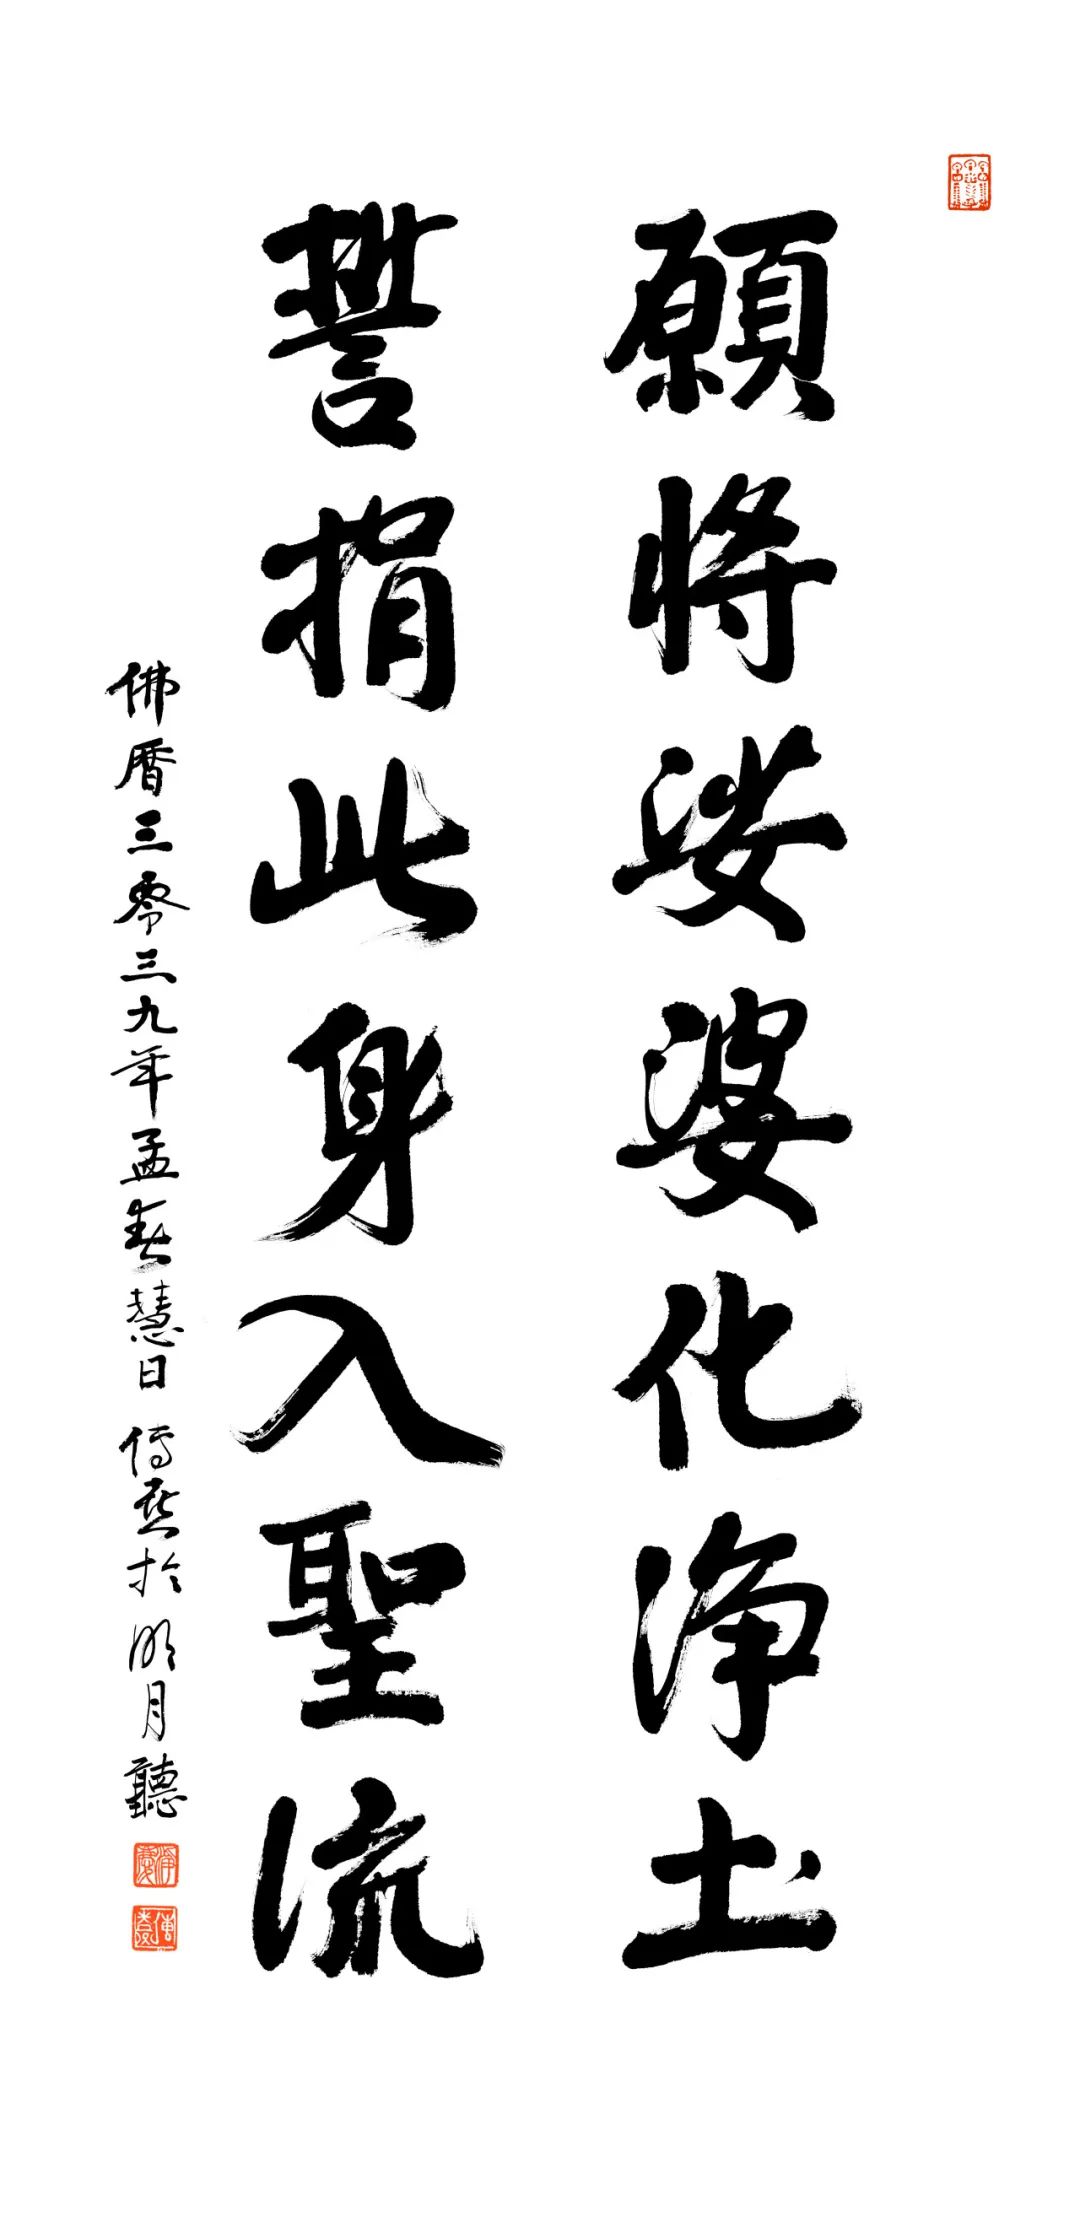 願將娑婆化淨土
誓捐此身入聖流
佛曆三零三九年孟春慧日 傳於明月聽